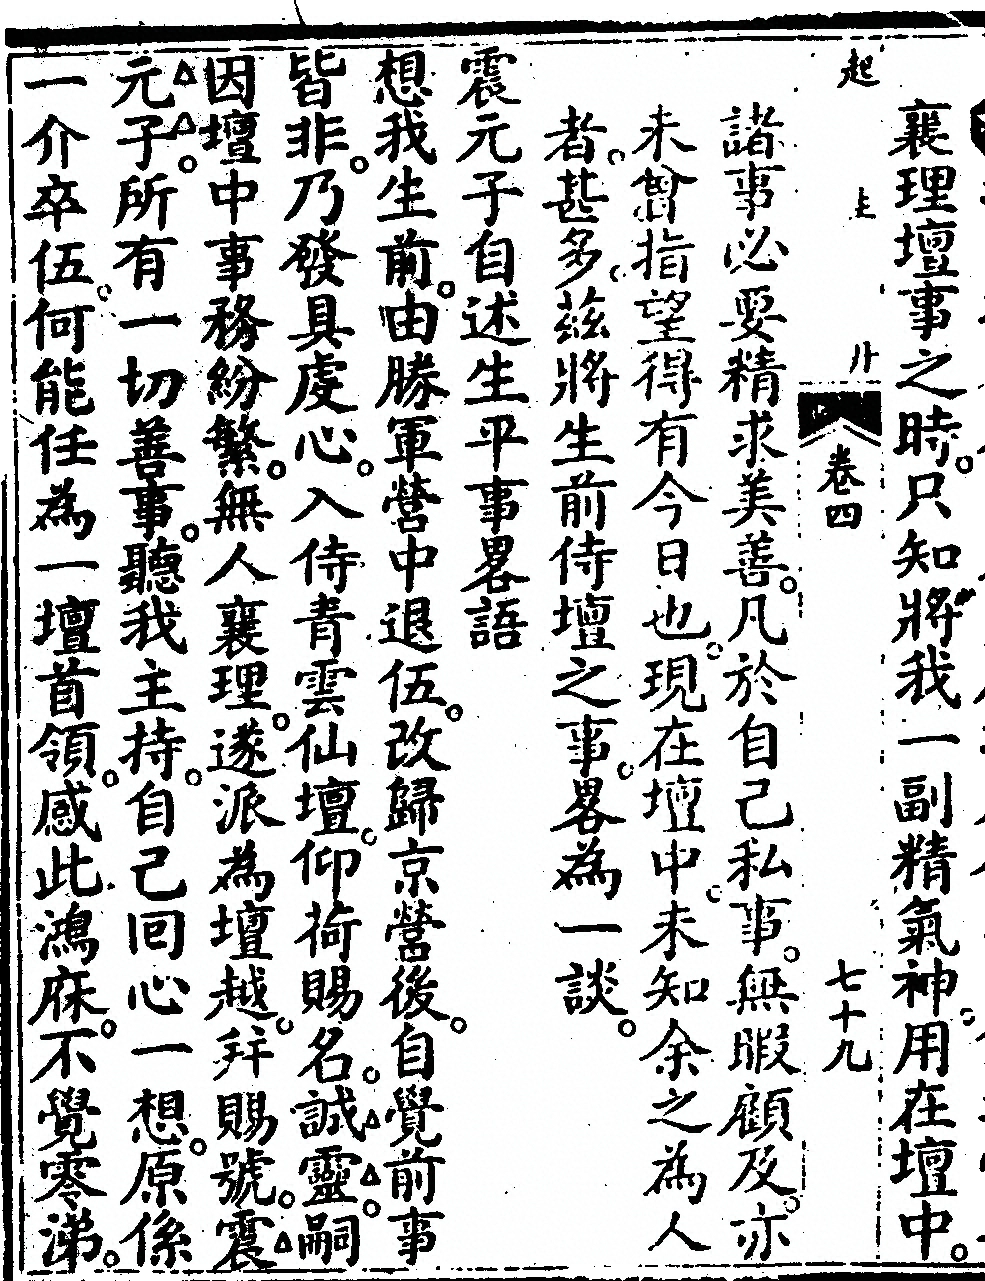 襄理壇事之時。只知將我一副精氣神。用在壇中。
起
卷四
七十九
諸事必要精求美善。凡於自己私事。無暇顧及。亦
未曾指望得有今日也。現在壇中。未知余之為人
者。甚多。茲將生前侍壇之事。畧為一談。
震元子自述生平事畧語
想我生前。由勝軍營中退伍。改歸京營後。自覺前事
皆非。乃發具虔心。入侍青雲仙壇。仰荷賜名。誠靈嗣
因壇中事務紛繁。無人襄理。遂派為壇越。并賜號。震
元子。所有一切善事。聽我主持。自己回心一想。原係
一介卒伍。何能任為一壇首領。感此鴻庥。不覺零涕。